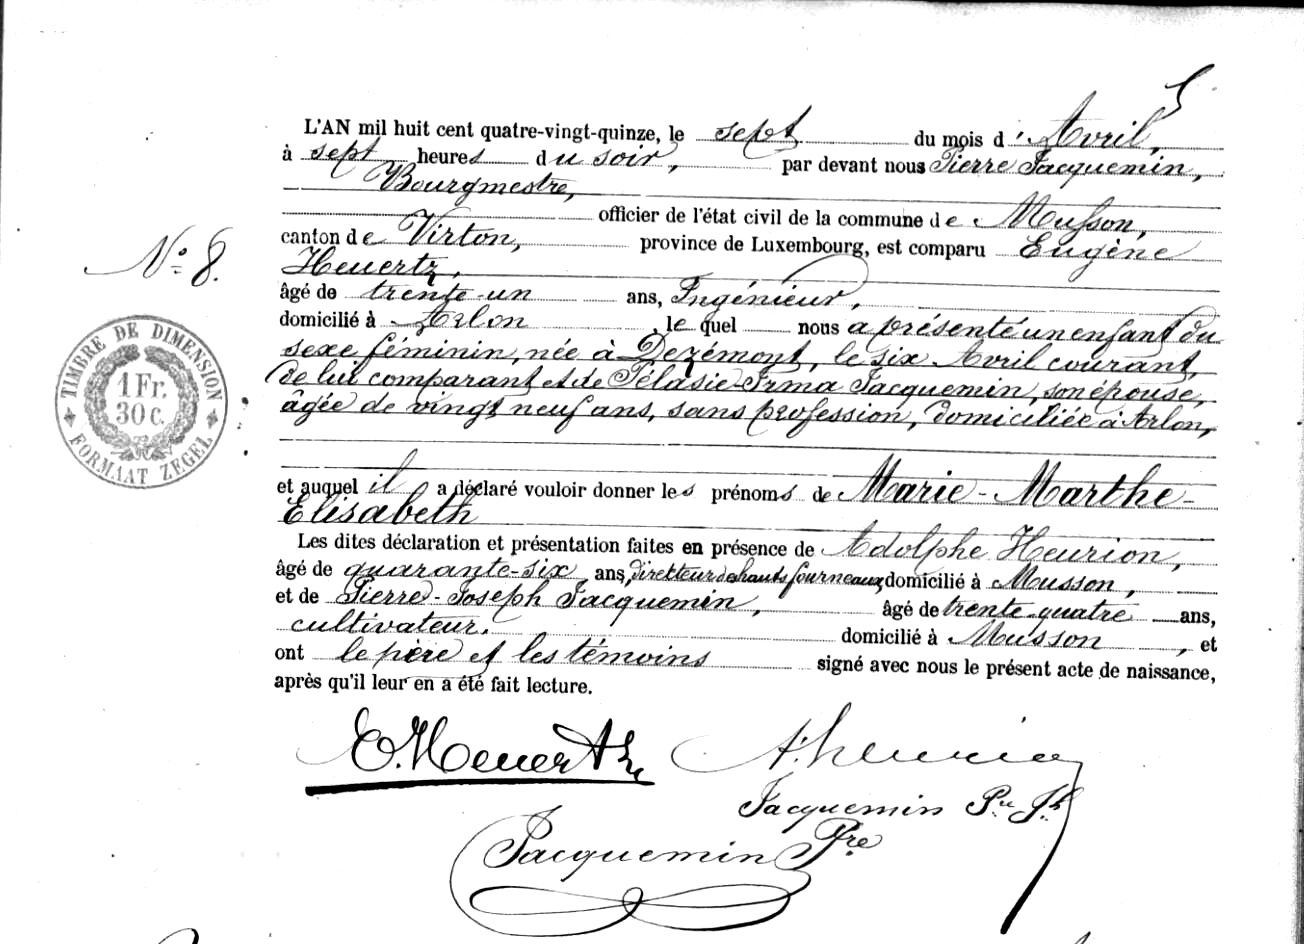 L'AN mil huit cent quatre-vingt-quinze, le sept du mois d'Avril,
à sept heures du soir, par devant nous Pierre Jacquemin,
Bourgmestre,
officier de l'état civil de la commune de Musson,
canton de Virton, province de Luxembourg, est comparu Eugène
Heuertz,
âgé de trente-un ans, Ingénieur,
domicilié à Arlon, lequel nous a présenté un enfant du
sexe féminin, née à, le six Avril courant,
de lui comparant et de Pélasie-Irma Jacquemin, son épouse,
âgée de vingt neuf ans, sans profession, domiciliée à Arlon,
et auquel il a déclaré vouloir donner les prénoms de Marie-Marthe-
Elisabeth
Les dites déclaration et présentation faites en présence de Adolphe Heurion,
âgé de quarante-six ans, direkteur de hauts fourneaux domicilié à Musson,
et de Pierre-Joseph Jacquemin, âgé de trente-quatre ans,
cultivateur. domicilié à Musson, et
ont le père et les témoins signé avec nous le présent acte de naissance,
après qu'il leur en a été fait lecture.
N° 8.
TIMBRE DE DIMENSION
1 Fr.
30 c.
FORMAAT ZEGEL
E. Heuertz
Jacquemin Pre Jh
Jacquemin Pre